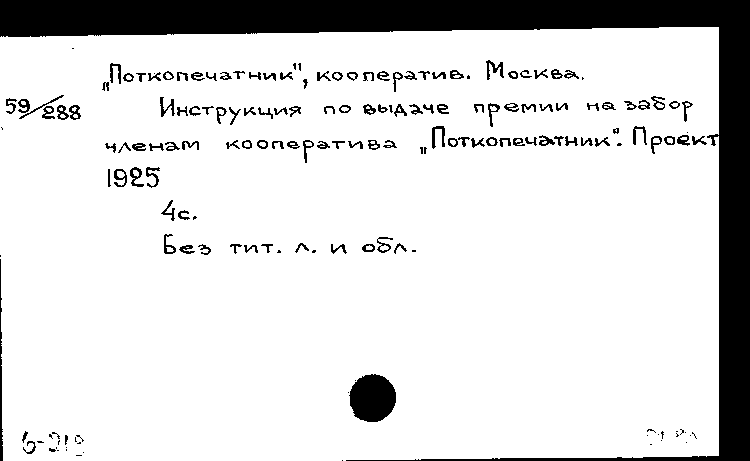 „Поткопечатник", кооператив. Москва.
59/288
Инструкция по выдаче премии на забор
членам кооператива „Поткопечатник". Проект
1925
4с.
Без тит. л. и обл.
6-219